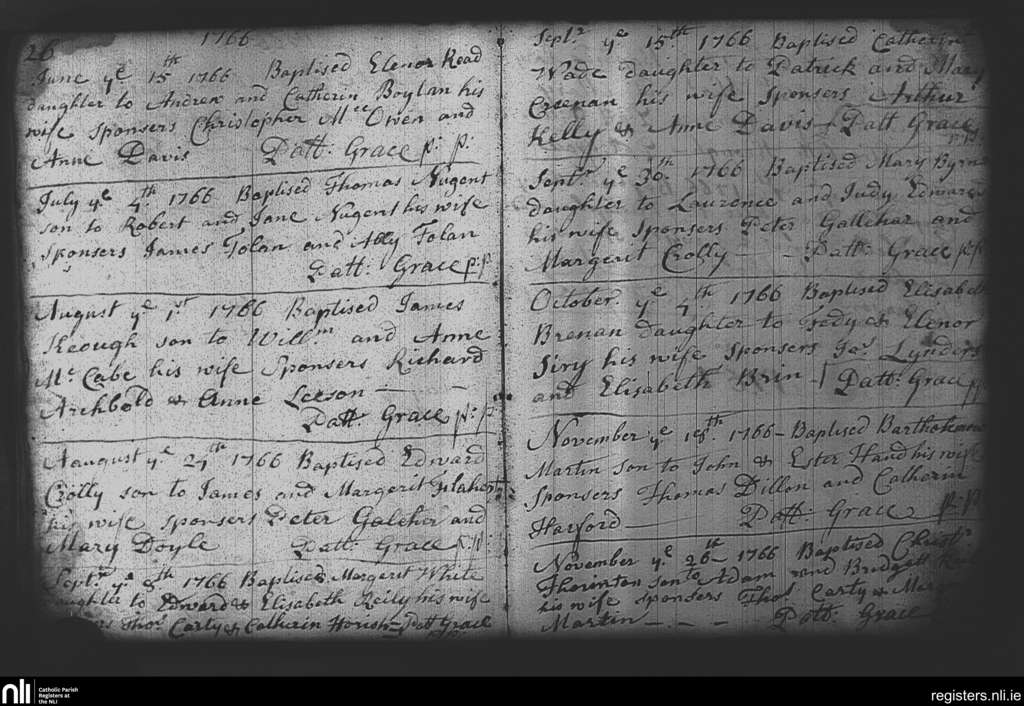 26
1766
June ye 15th 1766 Baptised Elenor Read
daughter to Andrew and Catherin Boylan his
wife Sponsers Christopher Mc Owen and
Anne Davis Patt: Grace p: p:
July ye 4th 1766 Baptised Thomas Nugent
son to Robert and Jane Nugent his wife
Sponsers James Tolan and Ally Tolan
Patt: Grace p:p:
August ye 1st 1766 Baptised James
Keough son to Willm and Anne
Mc Cabe his wife Sponsers Richard
Archbold & Anne Leeson
Patt: Grace p: p:
Aaugust ye 27th 1766 Baptised Edward
Crolly son to James and Margerit
his wife sponsers Peter Galcher and
Mary Doyle Patt: Grace p:p:
Septr ye 8th 1766 Baptised Margerit White
daughter to Edward & Elisabeth Reily his wife
Thos Carty & Catherin Patt Grace
Septr ye 15th 1766 Baptised Catherin
Wade daughter to Patrick and Mary
Creenan his wife Sponsers Arthur
Kelly & Anne Davis Patt Grace
Septr ye 30th 1766 Baptised Mary Byrne
daughter to Laurence and Judy Edwards
his wife Sponsers Peter Gallchar and
Margerit Crolly Patt: Grace p:p:
October ye 4th 1766 Baptised Elisabeth
Brenan daughter to & Elenor
his wife Sponsers Jas Lynders
and Elisabeth Brin Patt: Grace pp
November ye 18th 1766 Baptised Bartholomew
Martin son to John & Ester Hand his wife
Sponsers Thomas Dillon and Catherin
Harford Patt: Grace p: p:
November ye 26th 1766 Baptised Christr
Thornton son to Adam and Bridgett
his wife sponsers Thos Carty &
Martin Patt: Grace
nli
Catholic Parish
Registers at
the NLI
registers.nli.ie